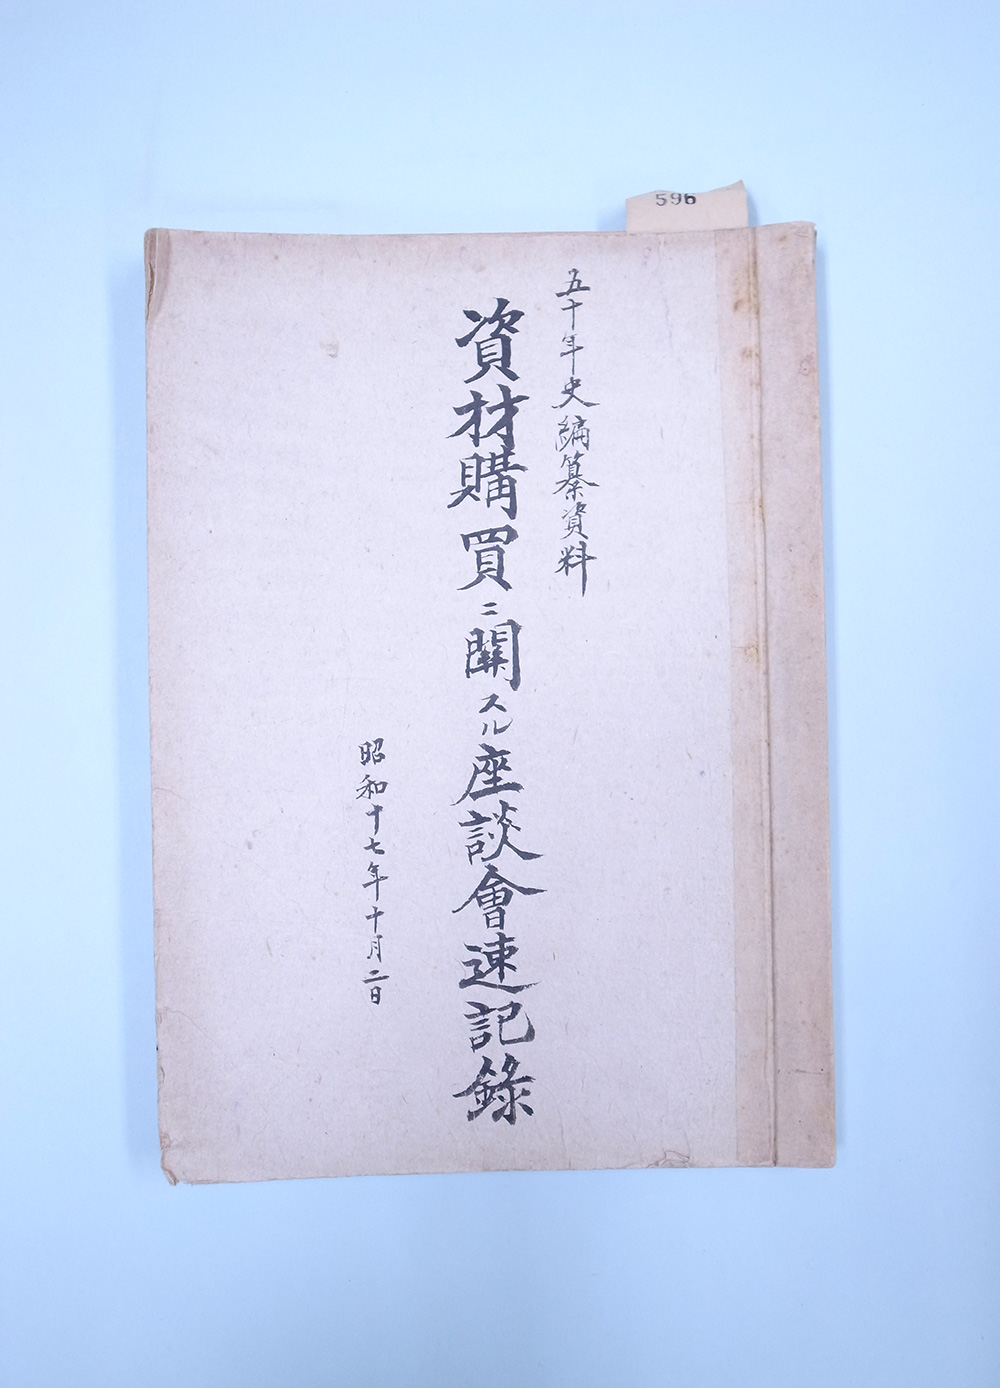 596
五十年史編纂資料
資材購買ニ關スル座談會速記錄
昭和十七年十月二日